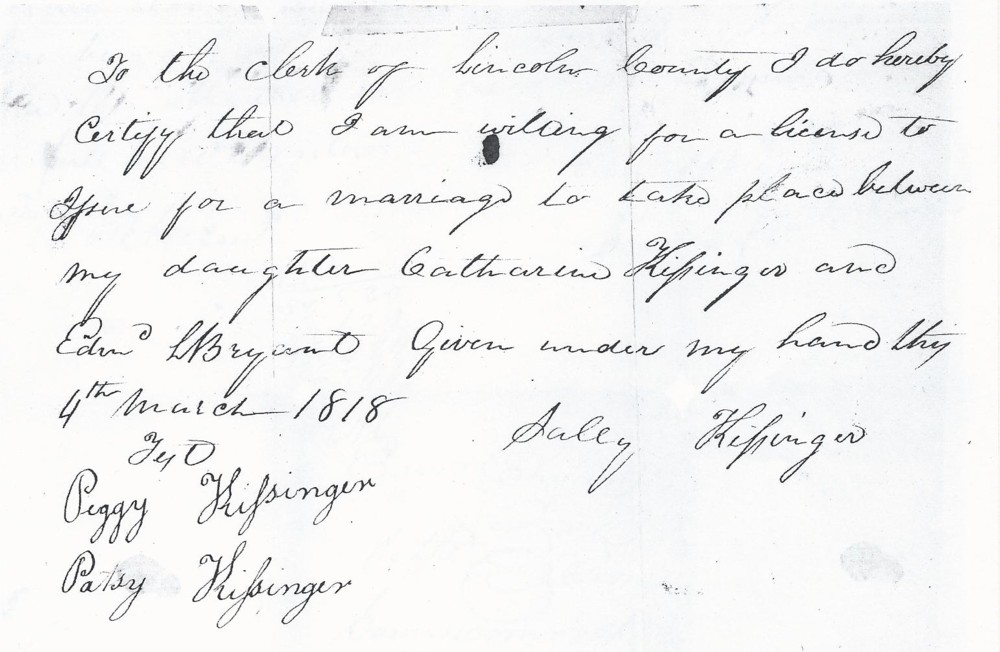 To the Clerk of Lincoln County I do hereby
Certify that I am willing for a license to
Issue for a marriage to take place between
my daughter Catharine Kissinger and
Edmd LBryant Given under my hand this
4th March 1818
Sally Kissinger
Test
Peggy Kissinger
Patsy Kissinger